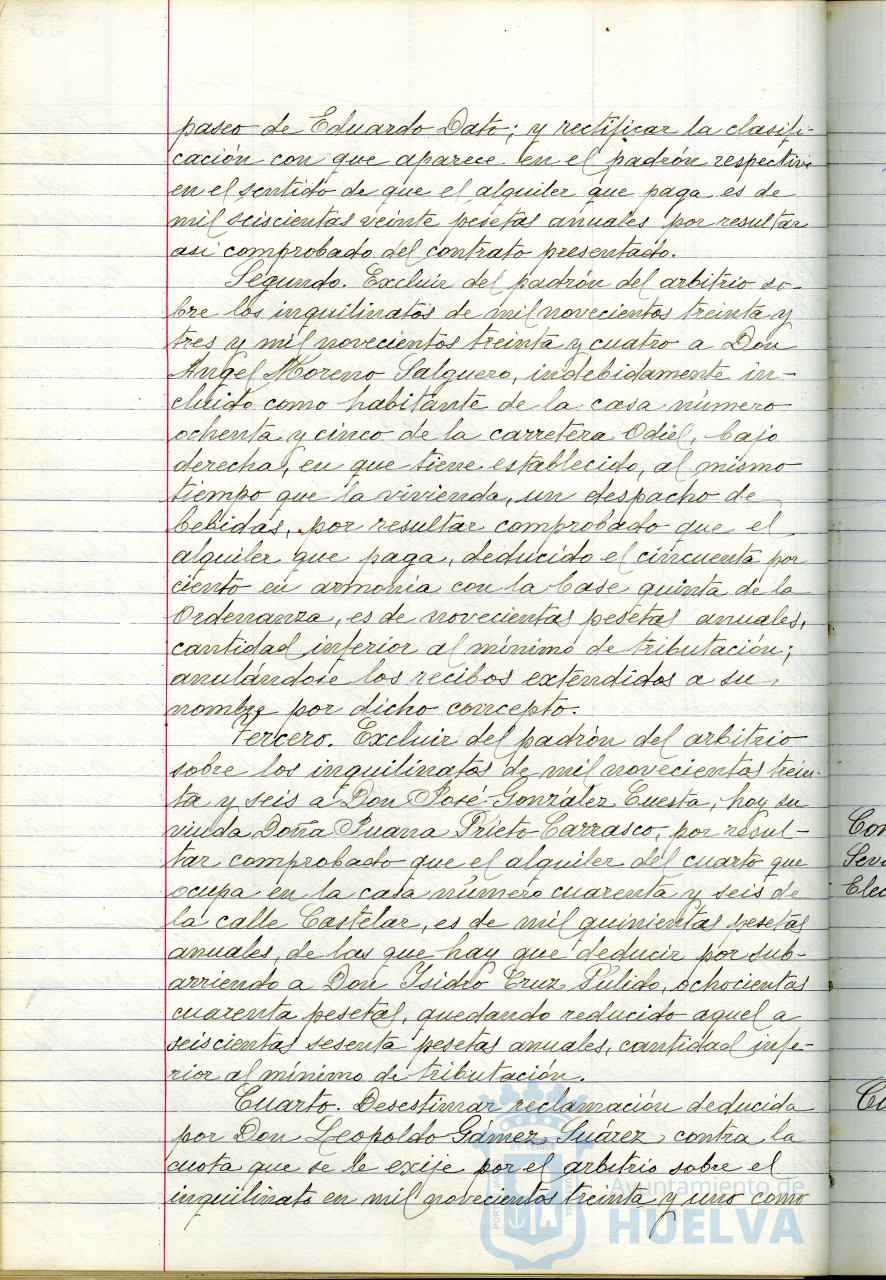 paseo de Eduardo Dato; y rectificar la clasifi-
cación con que aparece en el padrón respectivo
en el sentido de que el alquiler que paga es de
mil seiscientas veinte pesetas anuales por resultar
así comprobado del contrato presentado.
Segundo. Excluir del padrón del arbitrio so-
bre los inquilinatos de mil novecientos treinta y
tres y mil novecientos treinta y cuatro a Don
Angel Moreno Salguero, indebidamente in-
cluido como habitante de la casa número
ochenta y cinco de la carretera Odiel, bajo
derecha, en que tiene establecido, al mismo
tiempo que la vivienda, un despacho de
bebidas, por resultar comprobado que el
alquiler que paga, deducido el cincuenta por
ciento en armonía con la base quinta de la
Ordenanza, es de novecientas pesetas anuales,
cantidad inferior al mínimo de tributación;
anulándose los recibos extendidos a su
nombre por dicho concepto.
Tercero. Excluir del padrón del arbitrio
sobre los inquilinatos de mil novecientos trein-
ta y seis a Don José González Cuesta, hoy su
viuda Doña Juana Prieto Carrasco, por resul-
tar comprobado que el alquiler del cuarto que
ocupa en la casa número cuarenta y seis de
la calle Castelar, es de mil quinientas pesetas
anuales, de las que hay que deducir por sub-
arriendo a Don Isidro Cruz Pulido, ochocientas
cuarenta pesetas, quedando reducido aquel a
seiscientas sesenta pesetas anuales, cantidad infe-
rior al mínimo de tributación.
Cuarto. Desestimar reclamación deducida
por Don Leopoldo Gámez Suárez, contra la
cuota que se le exije por el arbitrio sobre el
inquilinato en mil novecientos treinta y uno como
Con
Sev
Elec
Cu
Ayuntamiento de
HUELVA